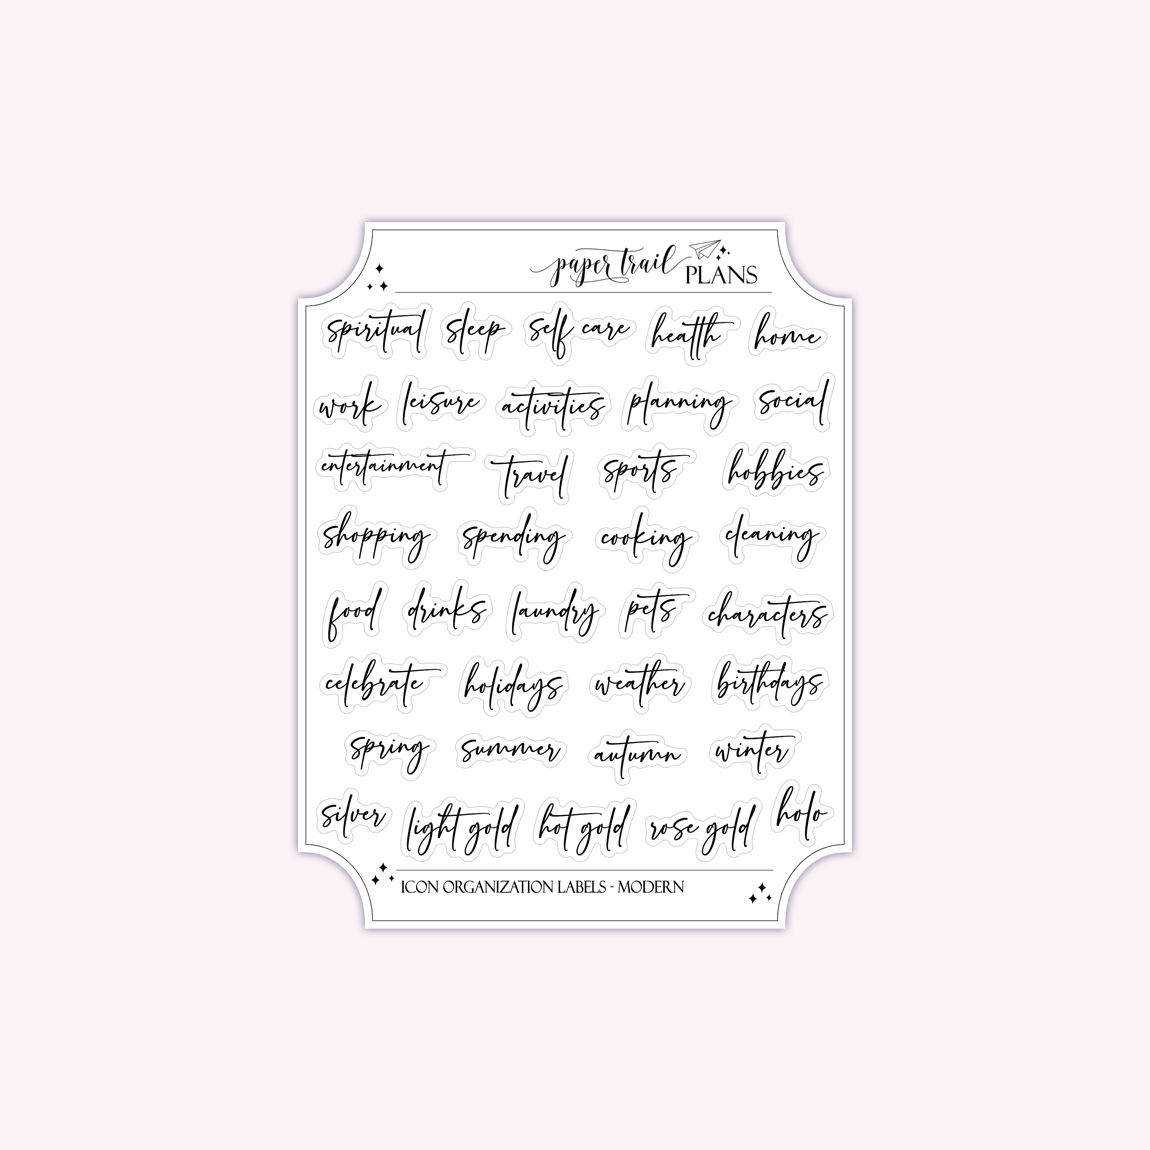 paper trail PLANS
spiritual sleep self care health home
work leisure activities planning social
entertainment travel sports hobbies
shopping spending cooking cleaning
food drinks laundry pets characters
celebrate holidays weather birthdays
spring summer autumn winter
silver light gold hot gold rose gold holo
ICON ORGANIZATION LABELS - MODERN